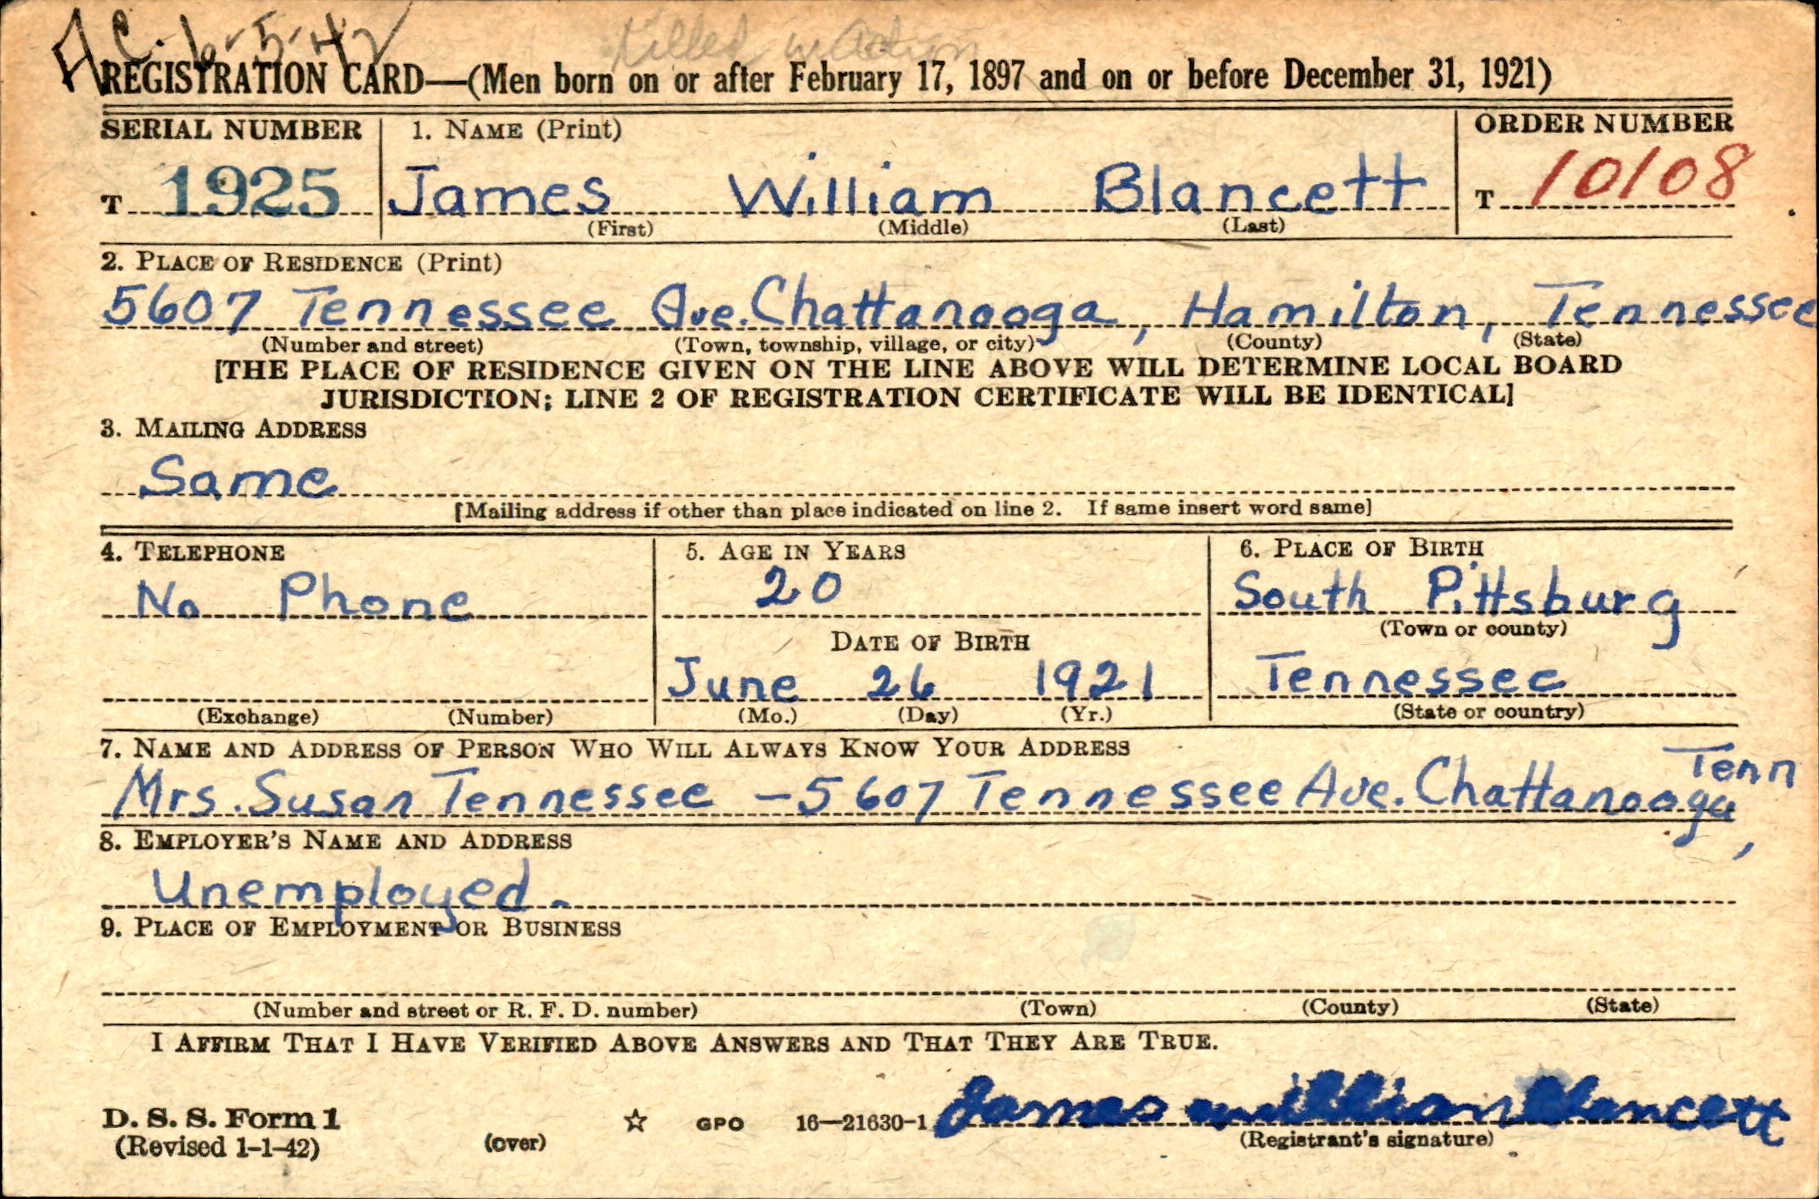 Ac. 6-5-42 Killed in Action
REGISTRATION CARD—(Men born on or after February 17, 1897 and on or before December 31, 1921)
SERIAL NUMBER 1. NAME (Print) ORDER NUMBER
T 1925 James William Blancett T 10108
(First) (Middle) (Last)
2. PLACE OF RESIDENCE (Print)
5607 Tennessee Ave. Chattanooga, Hamilton, Tennessee
(Number and street) (Town, township, village, or city) (County) (State)
[THE PLACE OF RESIDENCE GIVEN ON THE LINE ABOVE WILL DETERMINE LOCAL BOARD
JURISDICTION; LINE 2 OF REGISTRATION CERTIFICATE WILL BE IDENTICAL]
3. MAILING ADDRESS
Same
[Mailing address if other than place indicated on line 2. If same insert word same]
4. TELEPHONE 5. AGE IN YEARS 6. PLACE OF BIRTH
No Phone 20 South Pittsburg
(Town or county)
DATE OF BIRTH
June 26 1921 Tennessee
(Exchange) (Number) (Mo.) (Day) (Yr.) (State or country)
7. NAME AND ADDRESS OF PERSON WHO WILL ALWAYS KNOW YOUR ADDRESS
Mrs. Susan Tennessee - 5607 Tennessee Ave. Chattanooga, Tenn
8. EMPLOYER'S NAME AND ADDRESS
Unemployed.
9. PLACE OF EMPLOYMENT OR BUSINESS
(Number and street or R. F. D. number) (Town) (County) (State)
I AFFIRM THAT I HAVE VERIFIED ABOVE ANSWERS AND THAT THEY ARE TRUE.
D. S. S. Form 1 GPO 16—21630-1 James william Blancett
(Revised 1-1-42) (over) (Registrant's signature)